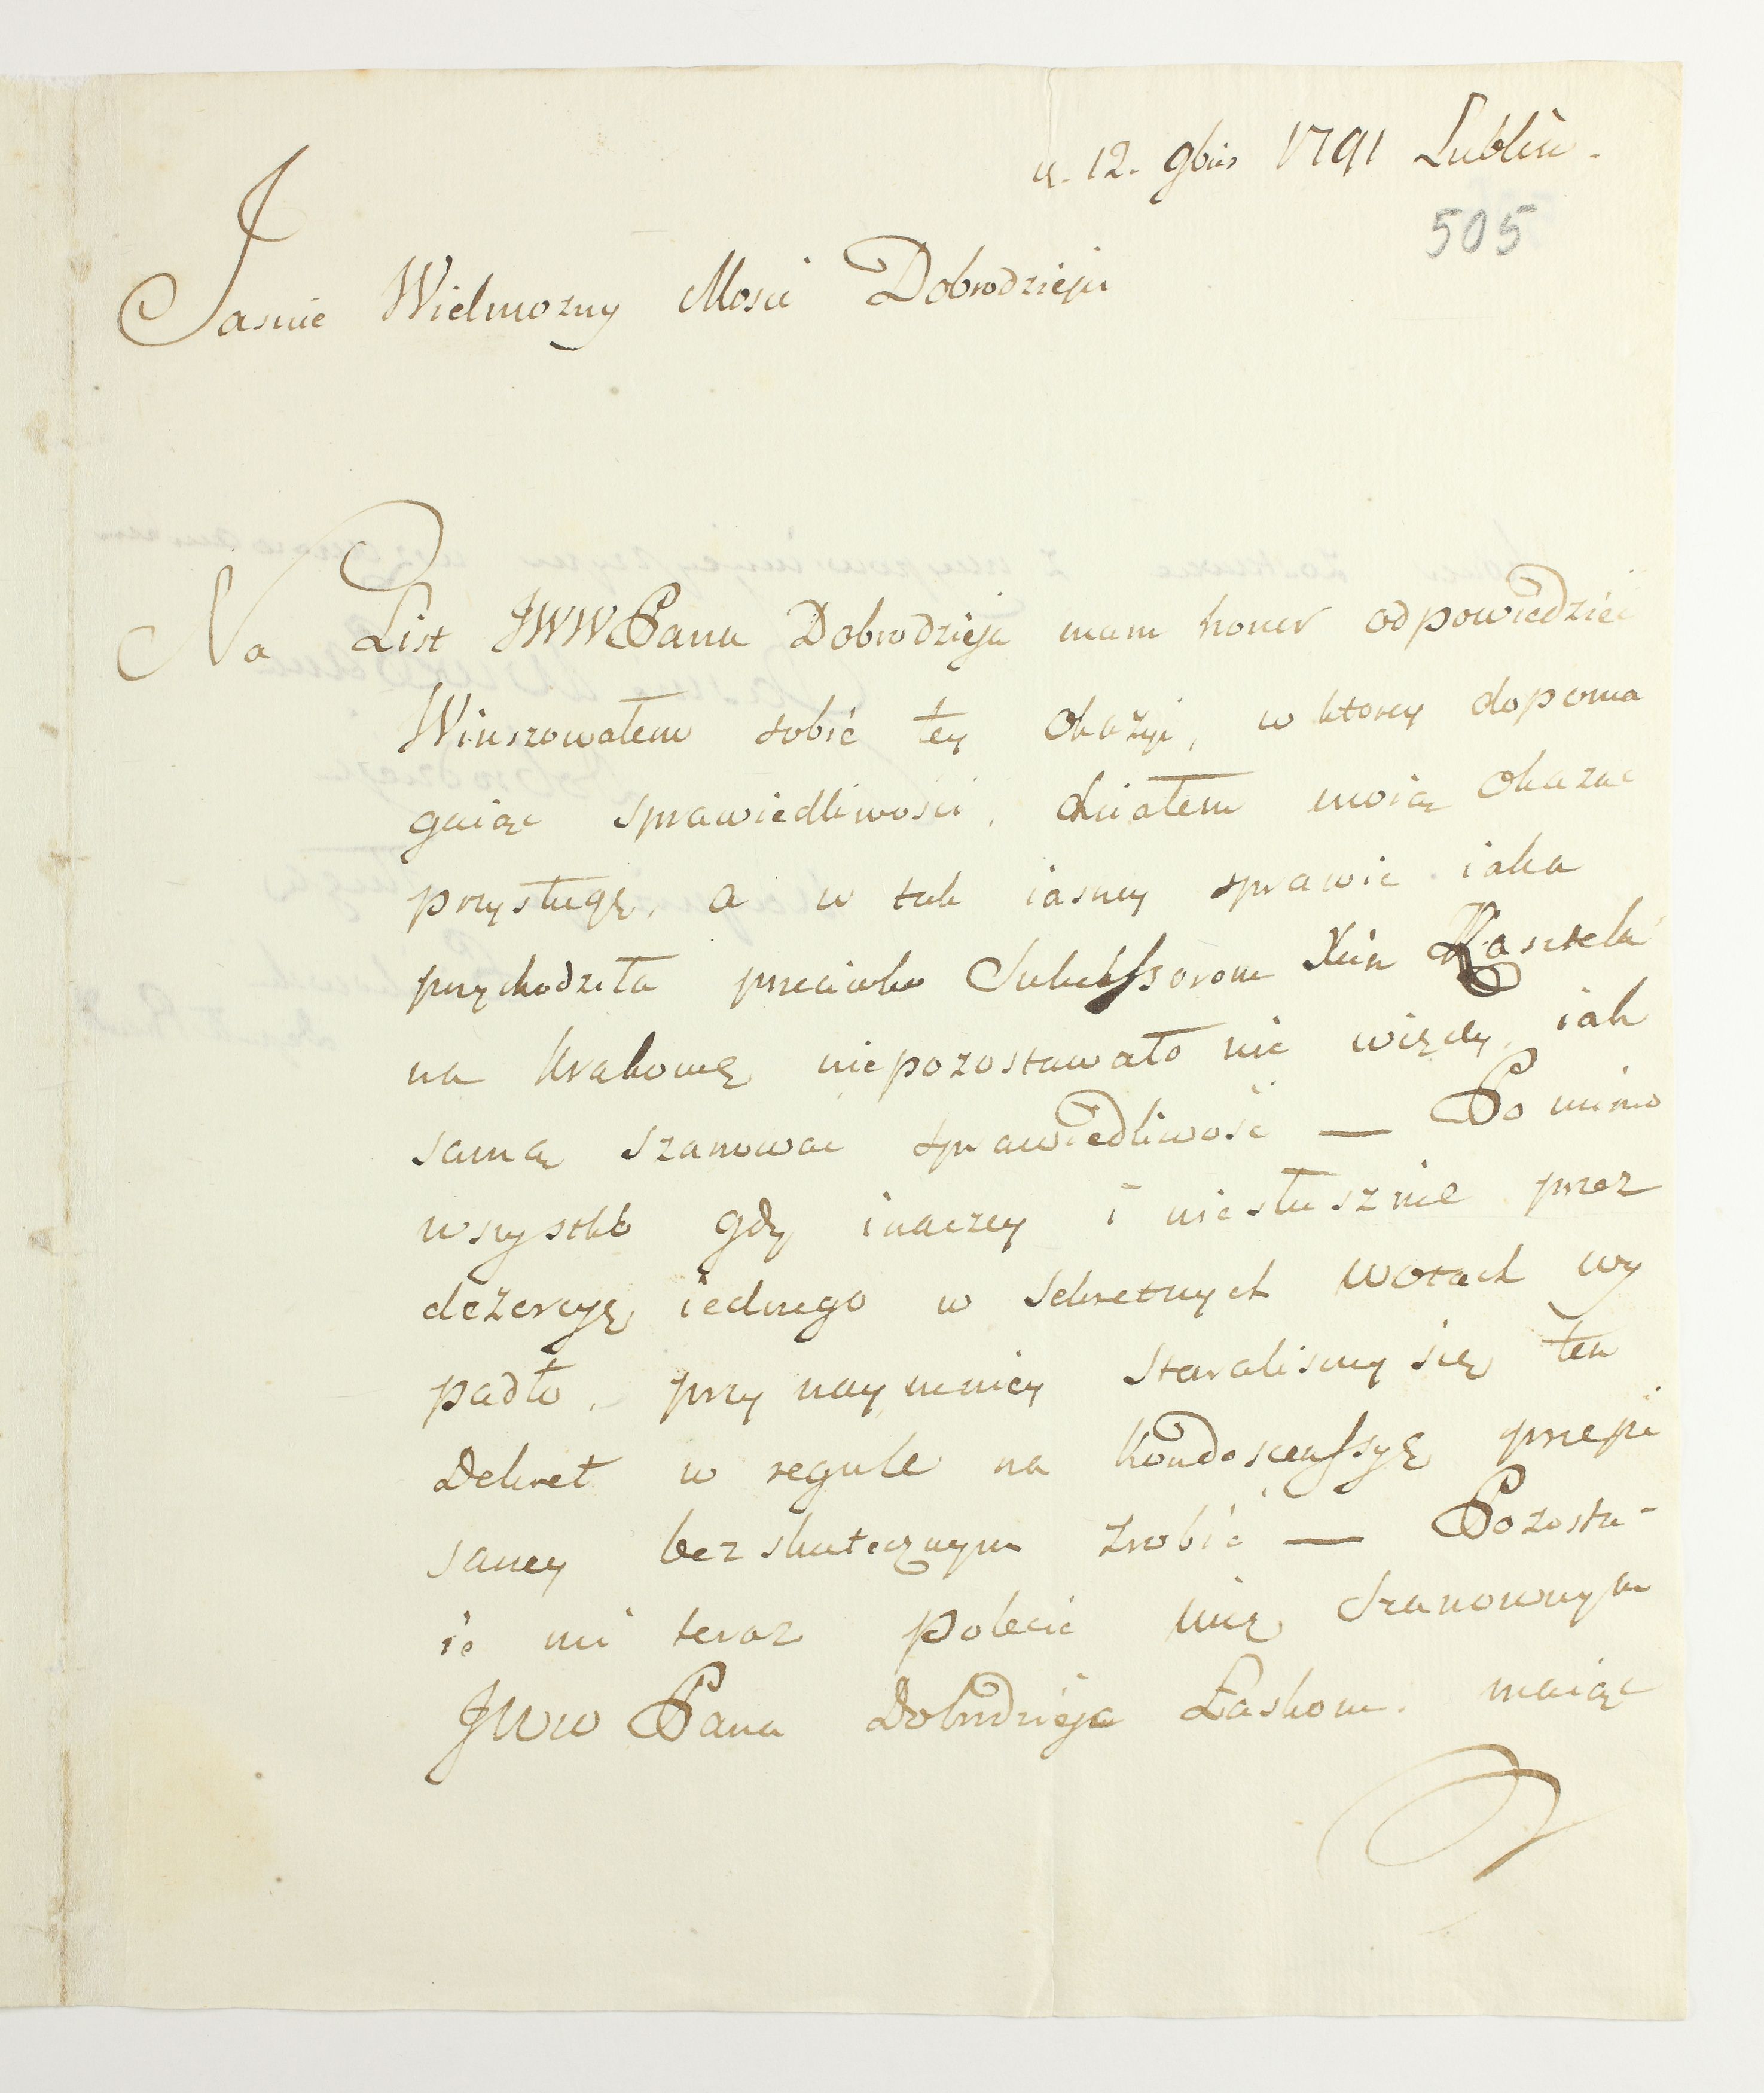 d. 12. 9bris 1791 Lublin.
505
Jasnie Wielmozny Mosci Dobrodzieju
Na List JWW Pana Dobrodzieja mam honor odpowiedziec
Winszowałem sobie tey Okazyi, w ktorey dopoma
gaiąc sprawiedliwosci, chciałem moią Okazac
przysługę, a w tak iasney sprawie iaka
przychodziła przeciwko Sukcessorom Xcia Kasztela
na Krakowę niepozostawało nic więcey, iak
samą szanowac sprawiedliwość — Po mimo
wszystko gdy inaczey i niesłusznie przez
dezercyę iednego w sekretnych wotach wy
padło, przy naymniey staralismy się ten
Dekret w regule na Kondescenssyę przepi
saney bezskutecznym zrobić — Pozosta-
ie mi teraz polecić mię Szanownym
JWW Pana Dobrodzieja Łaskom. maiąc